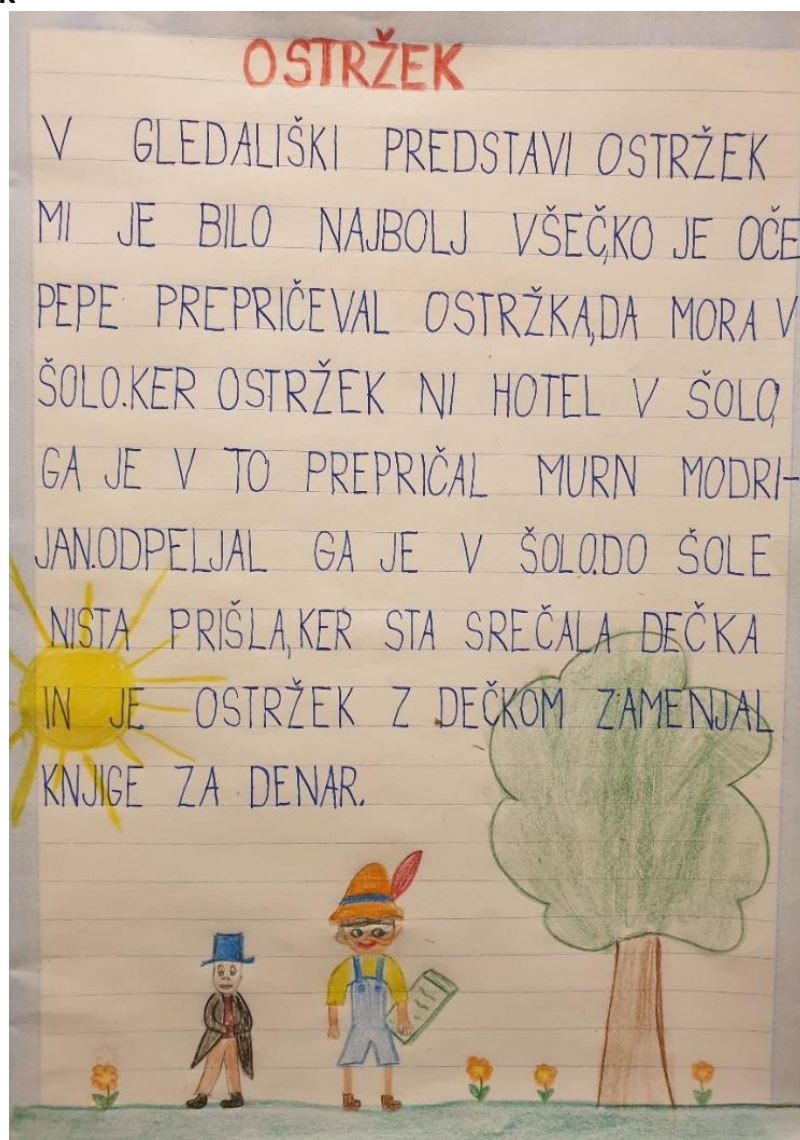 OSTRŽEK
V GLEDALIŠKI PREDSTAVI OSTRŽEK
MI JE BILO NAJBOLJ VŠEČ,KO JE OČE
PEPE PREPRIČEVAL OSTRŽKA,DA MORA V
ŠOLO.KER OSTRŽEK NI HOTEL V ŠOLO,
GA JE V TO PREPRIČAL MURN MODRI-
JAN.ODPELJAL GA JE V ŠOLO.DO ŠOLE
NISTA PRIŠLA,KER STA SREČALA DEČKA
IN JE OSTRŽEK Z DEČKOM ZAMENJAL
KNJIGE ZA DENAR.